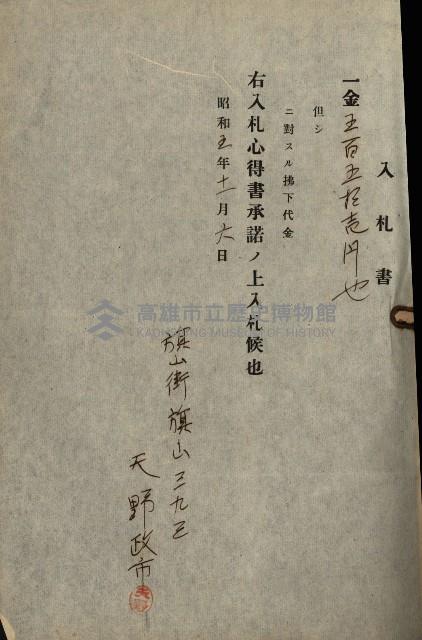 入札書
一金五百五拾壱円也
但シ
ニ對スル拂下代金
右入札心得書承諾ノ上入札候也
昭和五年十一月六日
旗山街旗山三九三
天野政市
天野
高雄市立歷史博物館
KAOHSIUNG MUSEUM OF HISTORY